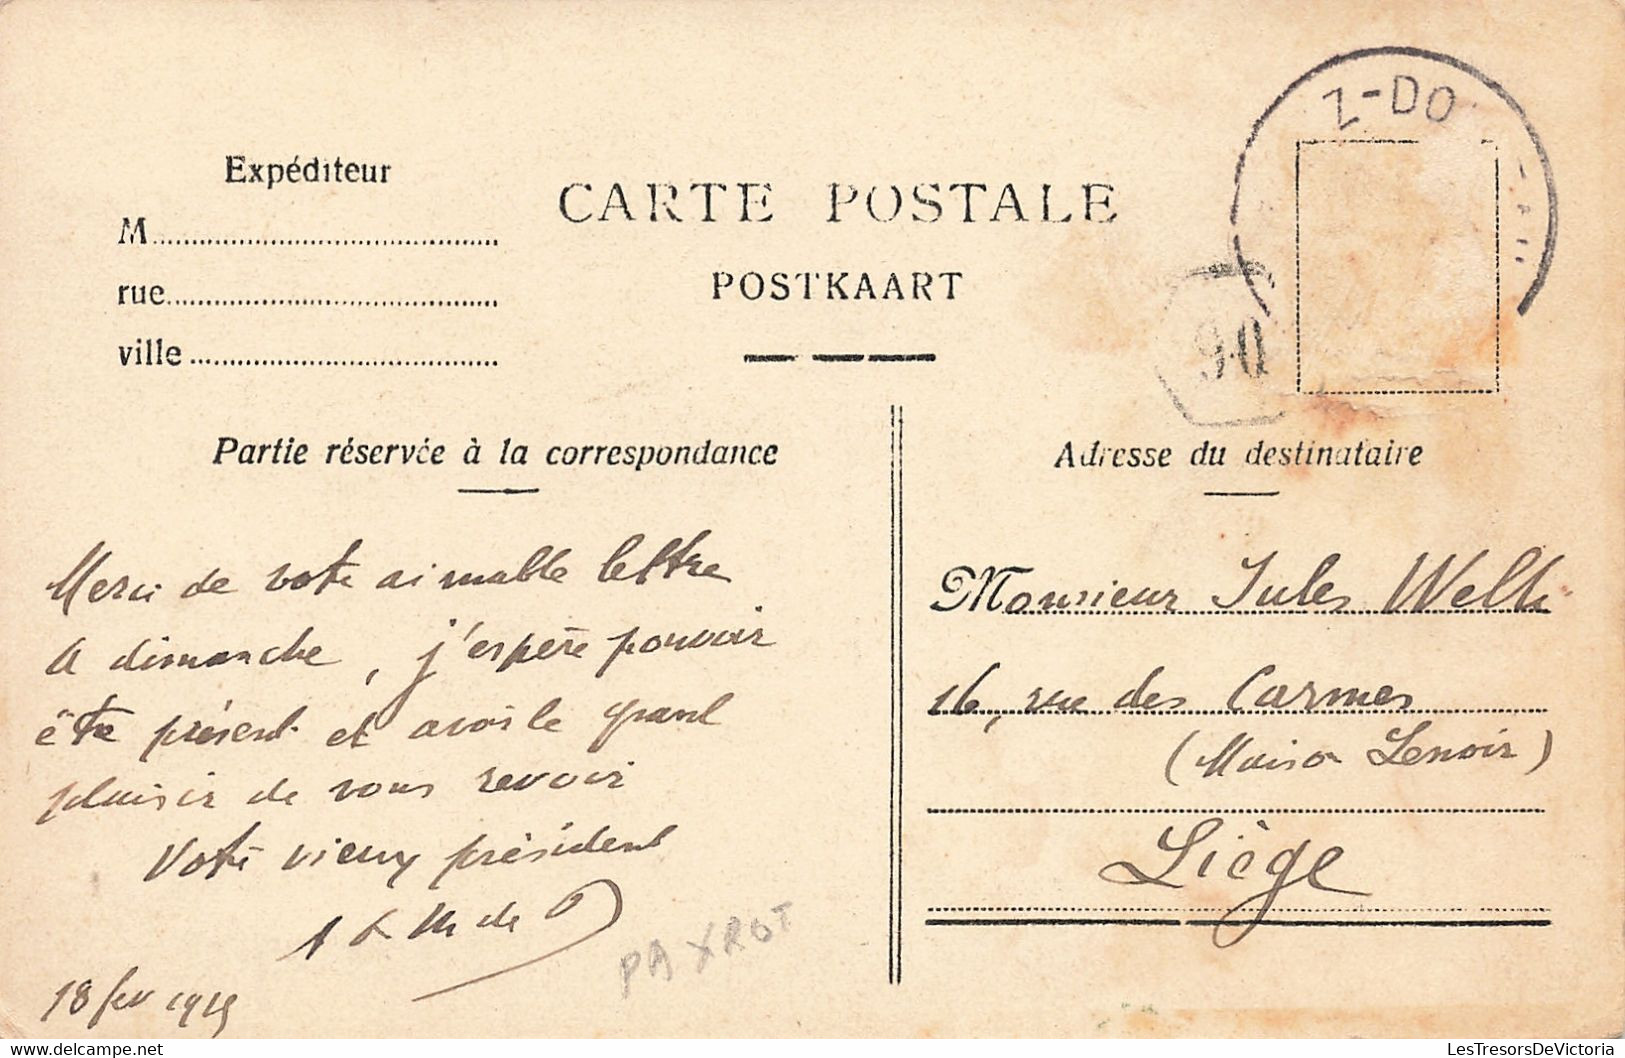 Expéditeur
M
rue
ville
CARTE POSTALE
POSTKAART
Z-DO
90
Partie réservée à la correspondance
Adresse du destinataire
Merci de vote aimable lettre
A dimanche, j'espère pouvoir
être présent et avoir le grand
plaisir de vous revoir
Vote vieux président
18 fev
PA
Monsieur Jules
16, rue des Carmes
(Maison Lenoir)
Liège
LesTresorsDeVictoria